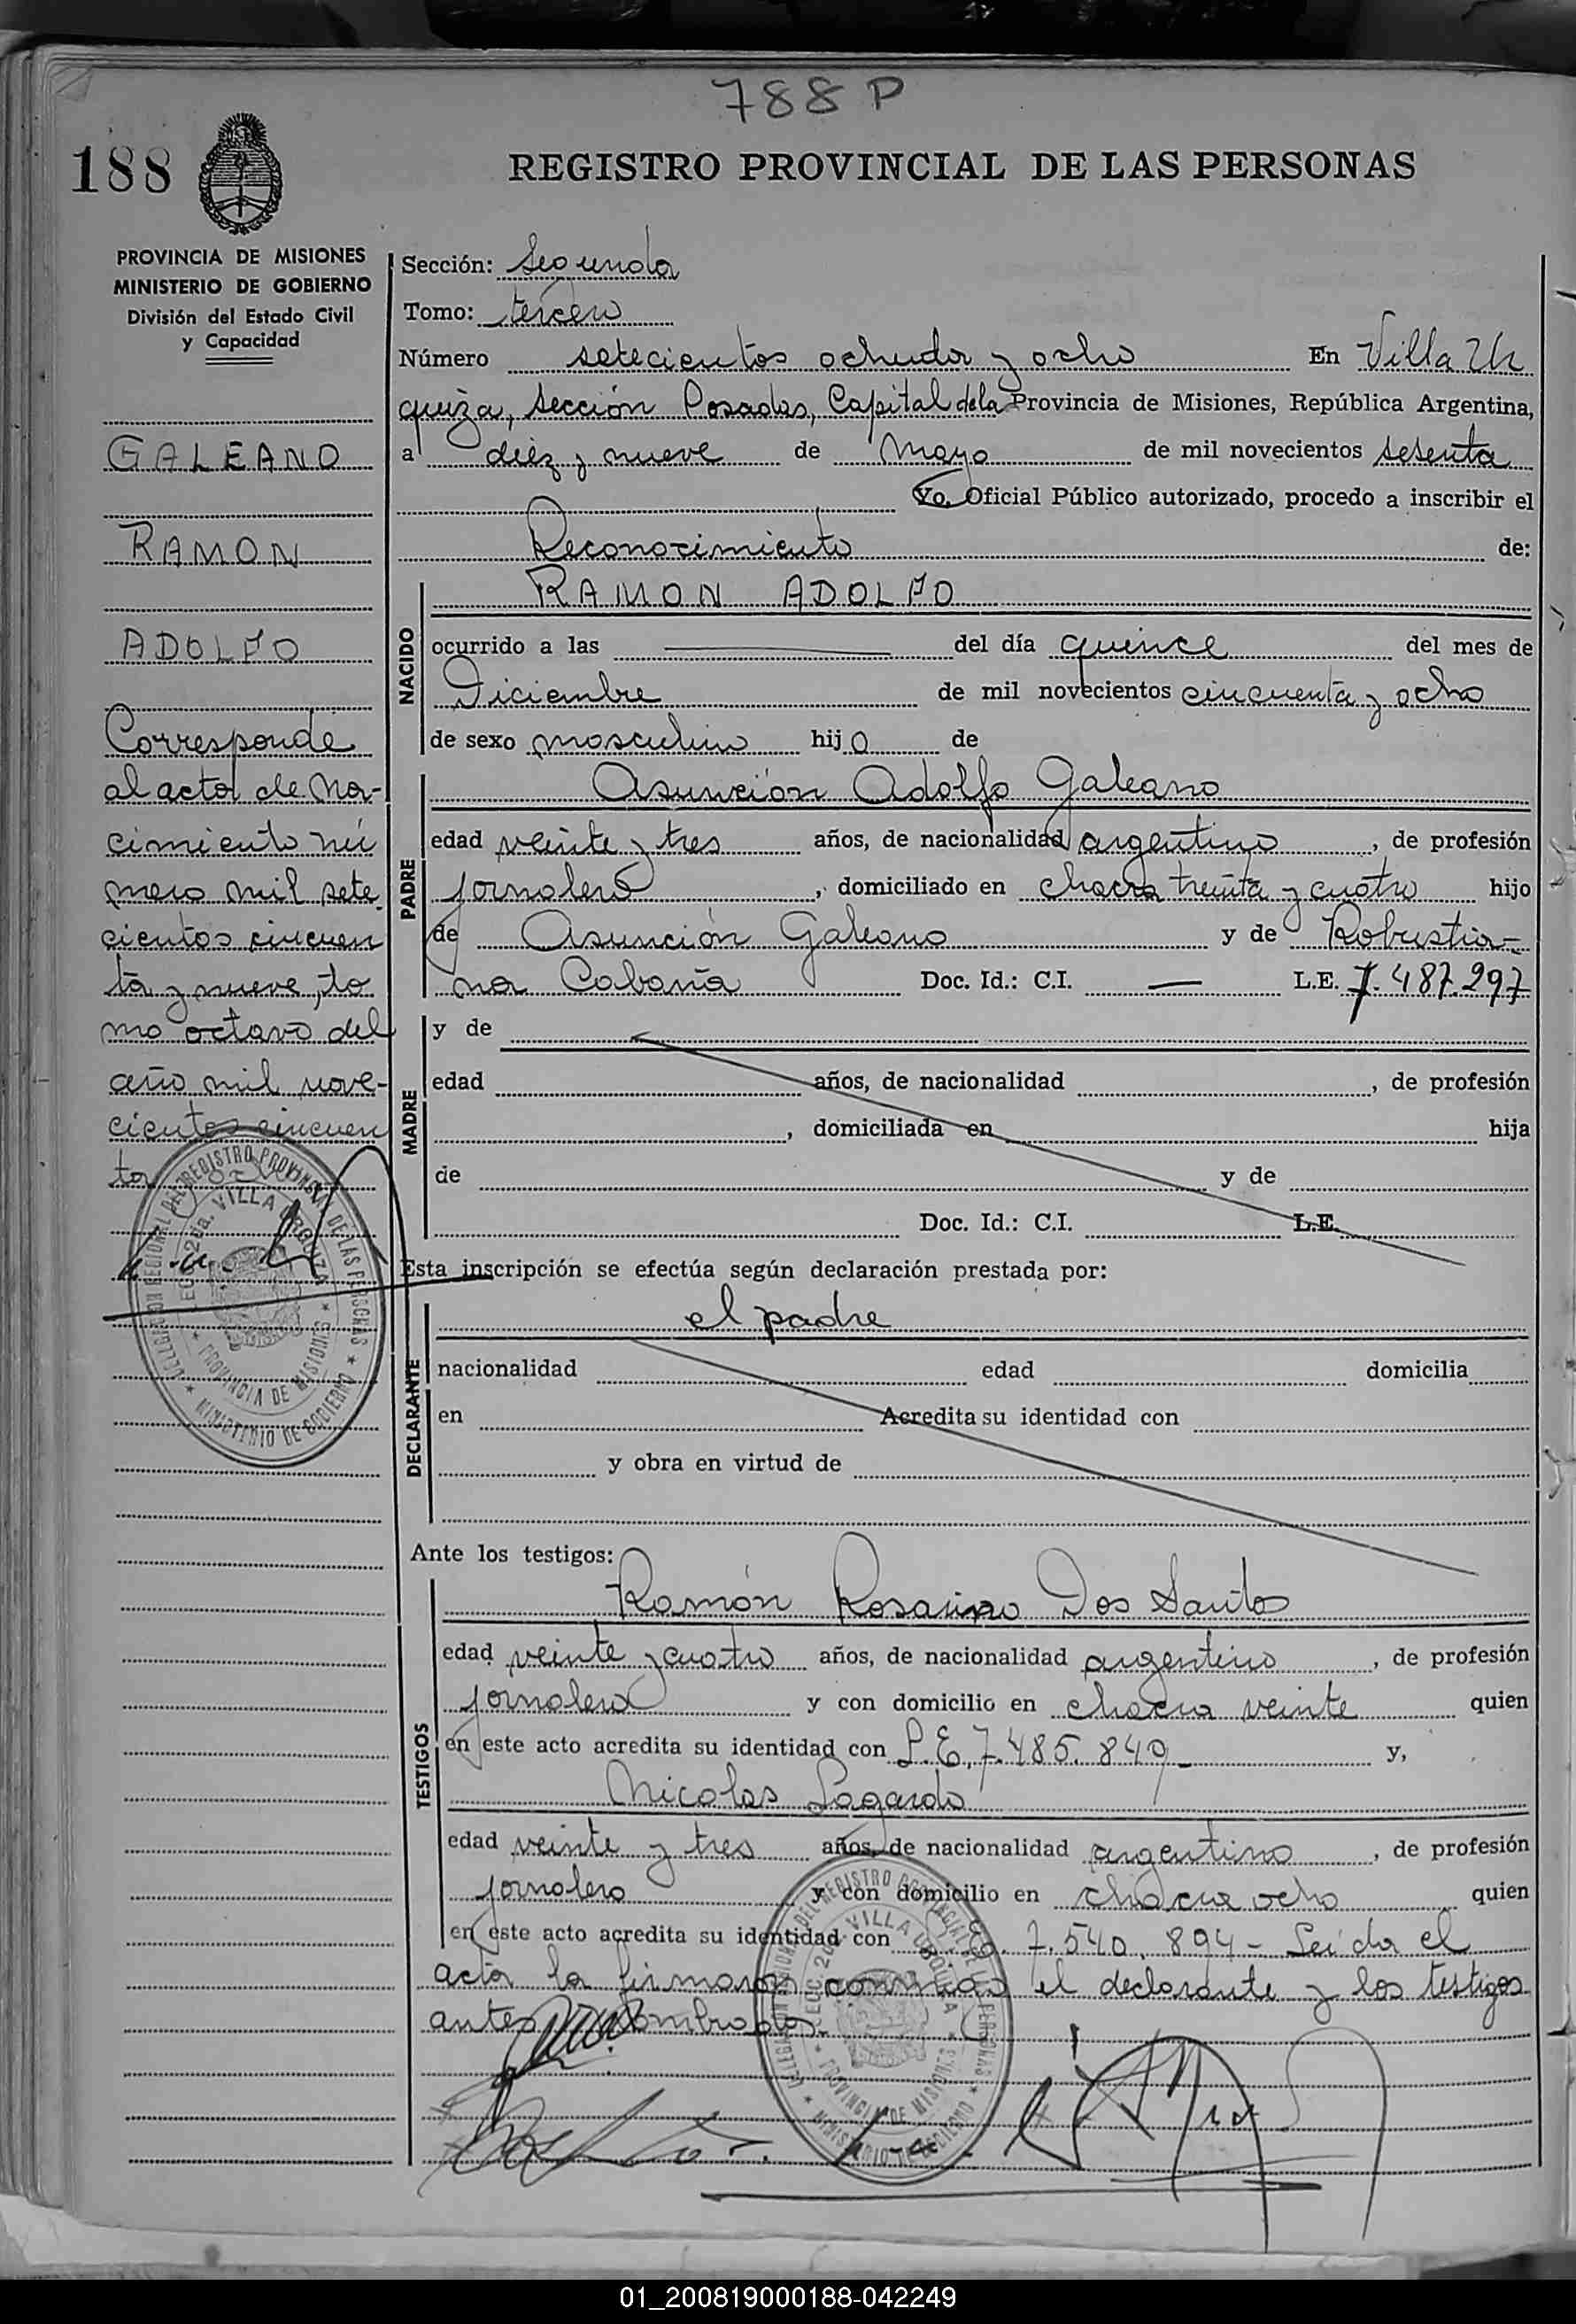 788 P
188
REGISTRO PROVINCIAL DE LAS PERSONAS
PROVINCIA DE MISIONES
MINISTERIO DE GOBIERNO
División del Estado Civil
y Capacidad
GALEANO
RAMON
ADOLFO
Corresponde
al acta de Na-
cimiento nú
mero mil sete
cientos cincuen
ta y nueve, to
mo octavo del
año mil nove-
cientos cincuen
ta y ocho
Sección: Segunda
Tomo: tercero
Número setecientos ochenta y ocho En Villa Ur
quiza, sección Posadas, Capital de la Provincia de Misiones, República Argentina,
a diez y nueve de Mayo de mil novecientos sesenta
Yo, Oficial Público autorizado, procedo a inscribir el
Reconocimiento de:
NACIDO
RAMON ADOLFO
ocurrido a las — del día quince del mes de
Diciembre de mil novecientos cincuenta y ocho
de sexo masculino hijo de
PADRE
Asunción Adolfo Galeano
edad veinte y tres años, de nacionalidad argentino, de profesión
jornalero, domiciliado en chacra treinta y cuatro hijo
de Asunción Galeano y de Robustia-
na Cabaña Doc. Id.: C.I. — L.E. 7.487.297
MADRE
y de
edad años, de nacionalidad , de profesión
, domiciliada en hija
de y de
Doc. Id.: C.I. L.E.
Esta inscripción se efectúa según declaración prestada por:
DECLARANTE
el padre
nacionalidad edad domicilia
en Acredita su identidad con
y obra en virtud de
Ante los testigos:
TESTIGOS
Ramón Rosarino Dos Santos
edad veinte y cuatro años, de nacionalidad argentino, de profesión
jornalero y con domicilio en chacra veinte quien
en este acto acredita su identidad con L.E. 7.485.849- y,
Nicolas Lagardo
edad veinte y tres años, de nacionalidad argentino, de profesión
jornalero y con domicilio en chacra ocho quien
en este acto acredita su identidad con 7.540.894- Leída el
acta la firmaron conmigo el declarante y los testigos
antes nombrados.
DELEGACION REGIONAL DEL REGISTRO PROVINCIAL DE LAS PERSONAS
SECC. 2da. VILLA URQUIZA
PROVINCIA DE MISIONES
MINISTERIO DE GOBIERNO
01_200819000188-042249